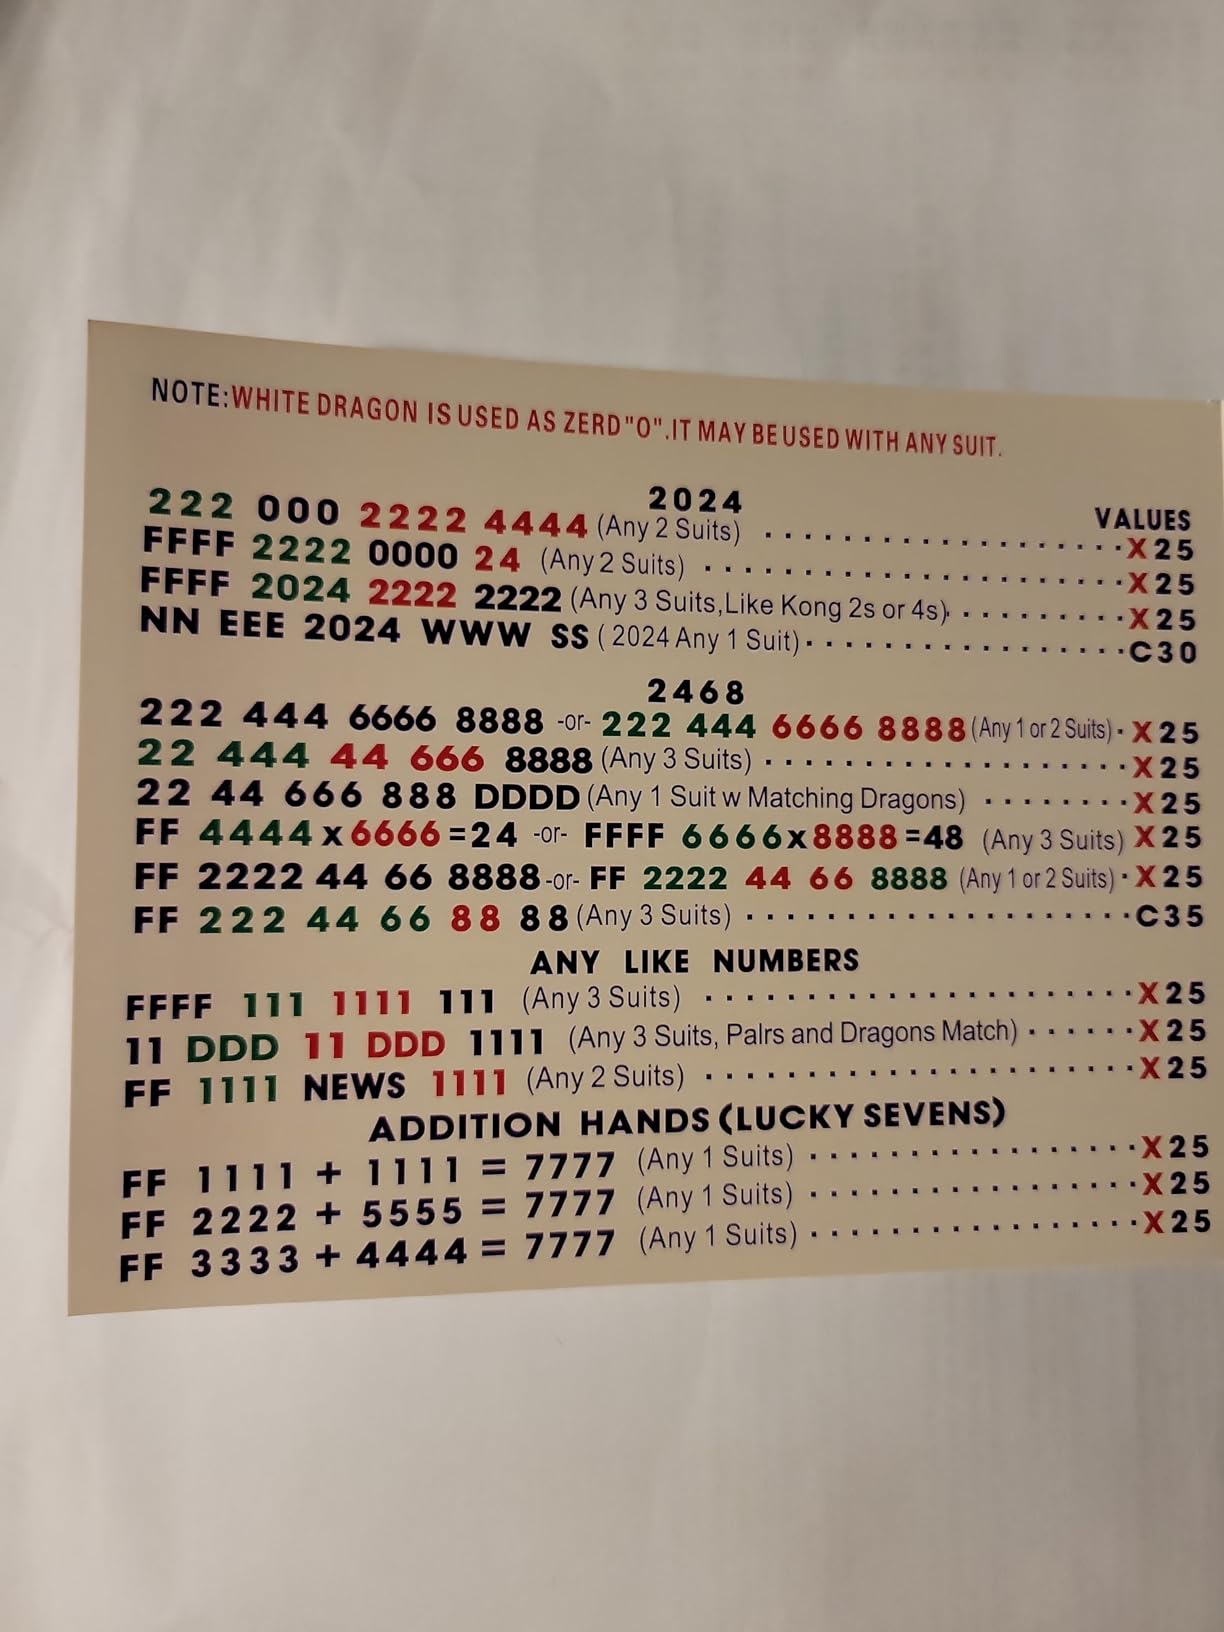 NOTE:WHITE DRAGON IS USED AS ZERD"O".IT MAY BE USED WITH ANY SUIT.
2024
VALUES
222 000 2222 4444 (Any 2 Suits) ....................X25
FFFF 2222 0000 24 (Any 2 Suits) ....................X25
FFFF 2024 2222 2222 (Any 3 Suits,Like Kong 2s or 4s).........X25
NN EEE 2024 WWW SS ( 2024 Any 1 Suit).................C30
2468
222 444 6666 8888 -or- 222 444 6666 8888 (Any 1 or 2 Suits)·X25
22 444 44 666 8888 (Any 3 Suits) ...................X25
22 44 666 888 DDDD (Any 1 Suit w Matching Dragons) ........X25
FF 4444 x 6666 =24 -or- FFFF 6666x8888=48 (Any 3 Suits) X25
FF 2222 44 66 8888-or- FF 2222 44 66 8888 (Any 1 or 2 Suits)·X25
FF 222 44 66 88 88 (Any 3 Suits) ....................C35
ANY LIKE NUMBERS
FFFF 111 1111 111 (Any 3 Suits) ......................X25
11 DDD 11 DDD 1111 (Any 3 Suits, Palrs and Dragons Match)......X25
FF 1111 NEWS 1111 (Any 2 Suits) ......................X25
ADDITION HANDS (LUCKY SEVENS)
FF 1111 + 1111 = 7777 (Any 1 Suits) .................X25
FF 2222 + 5555 = 7777 (Any 1 Suits) .................X25
FF 3333 + 4444 = 7777 (Any 1 Suits) .................X25